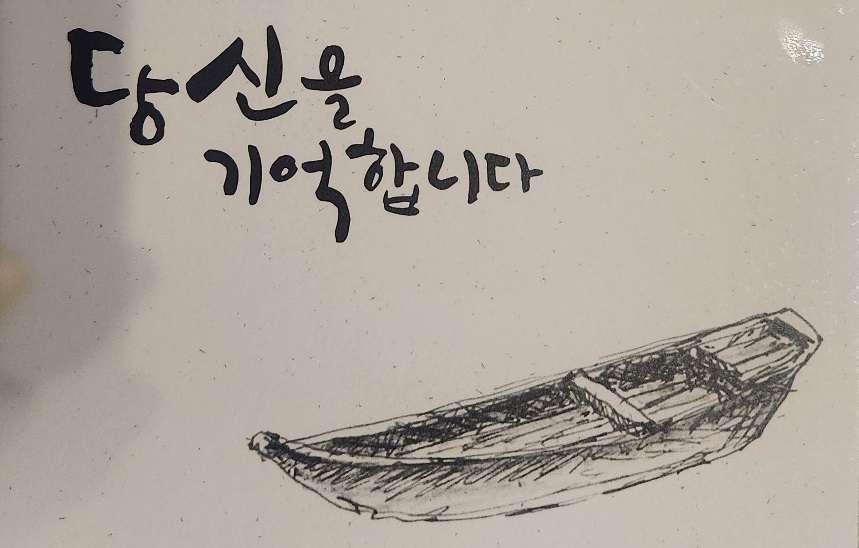 당신을
기억합니다